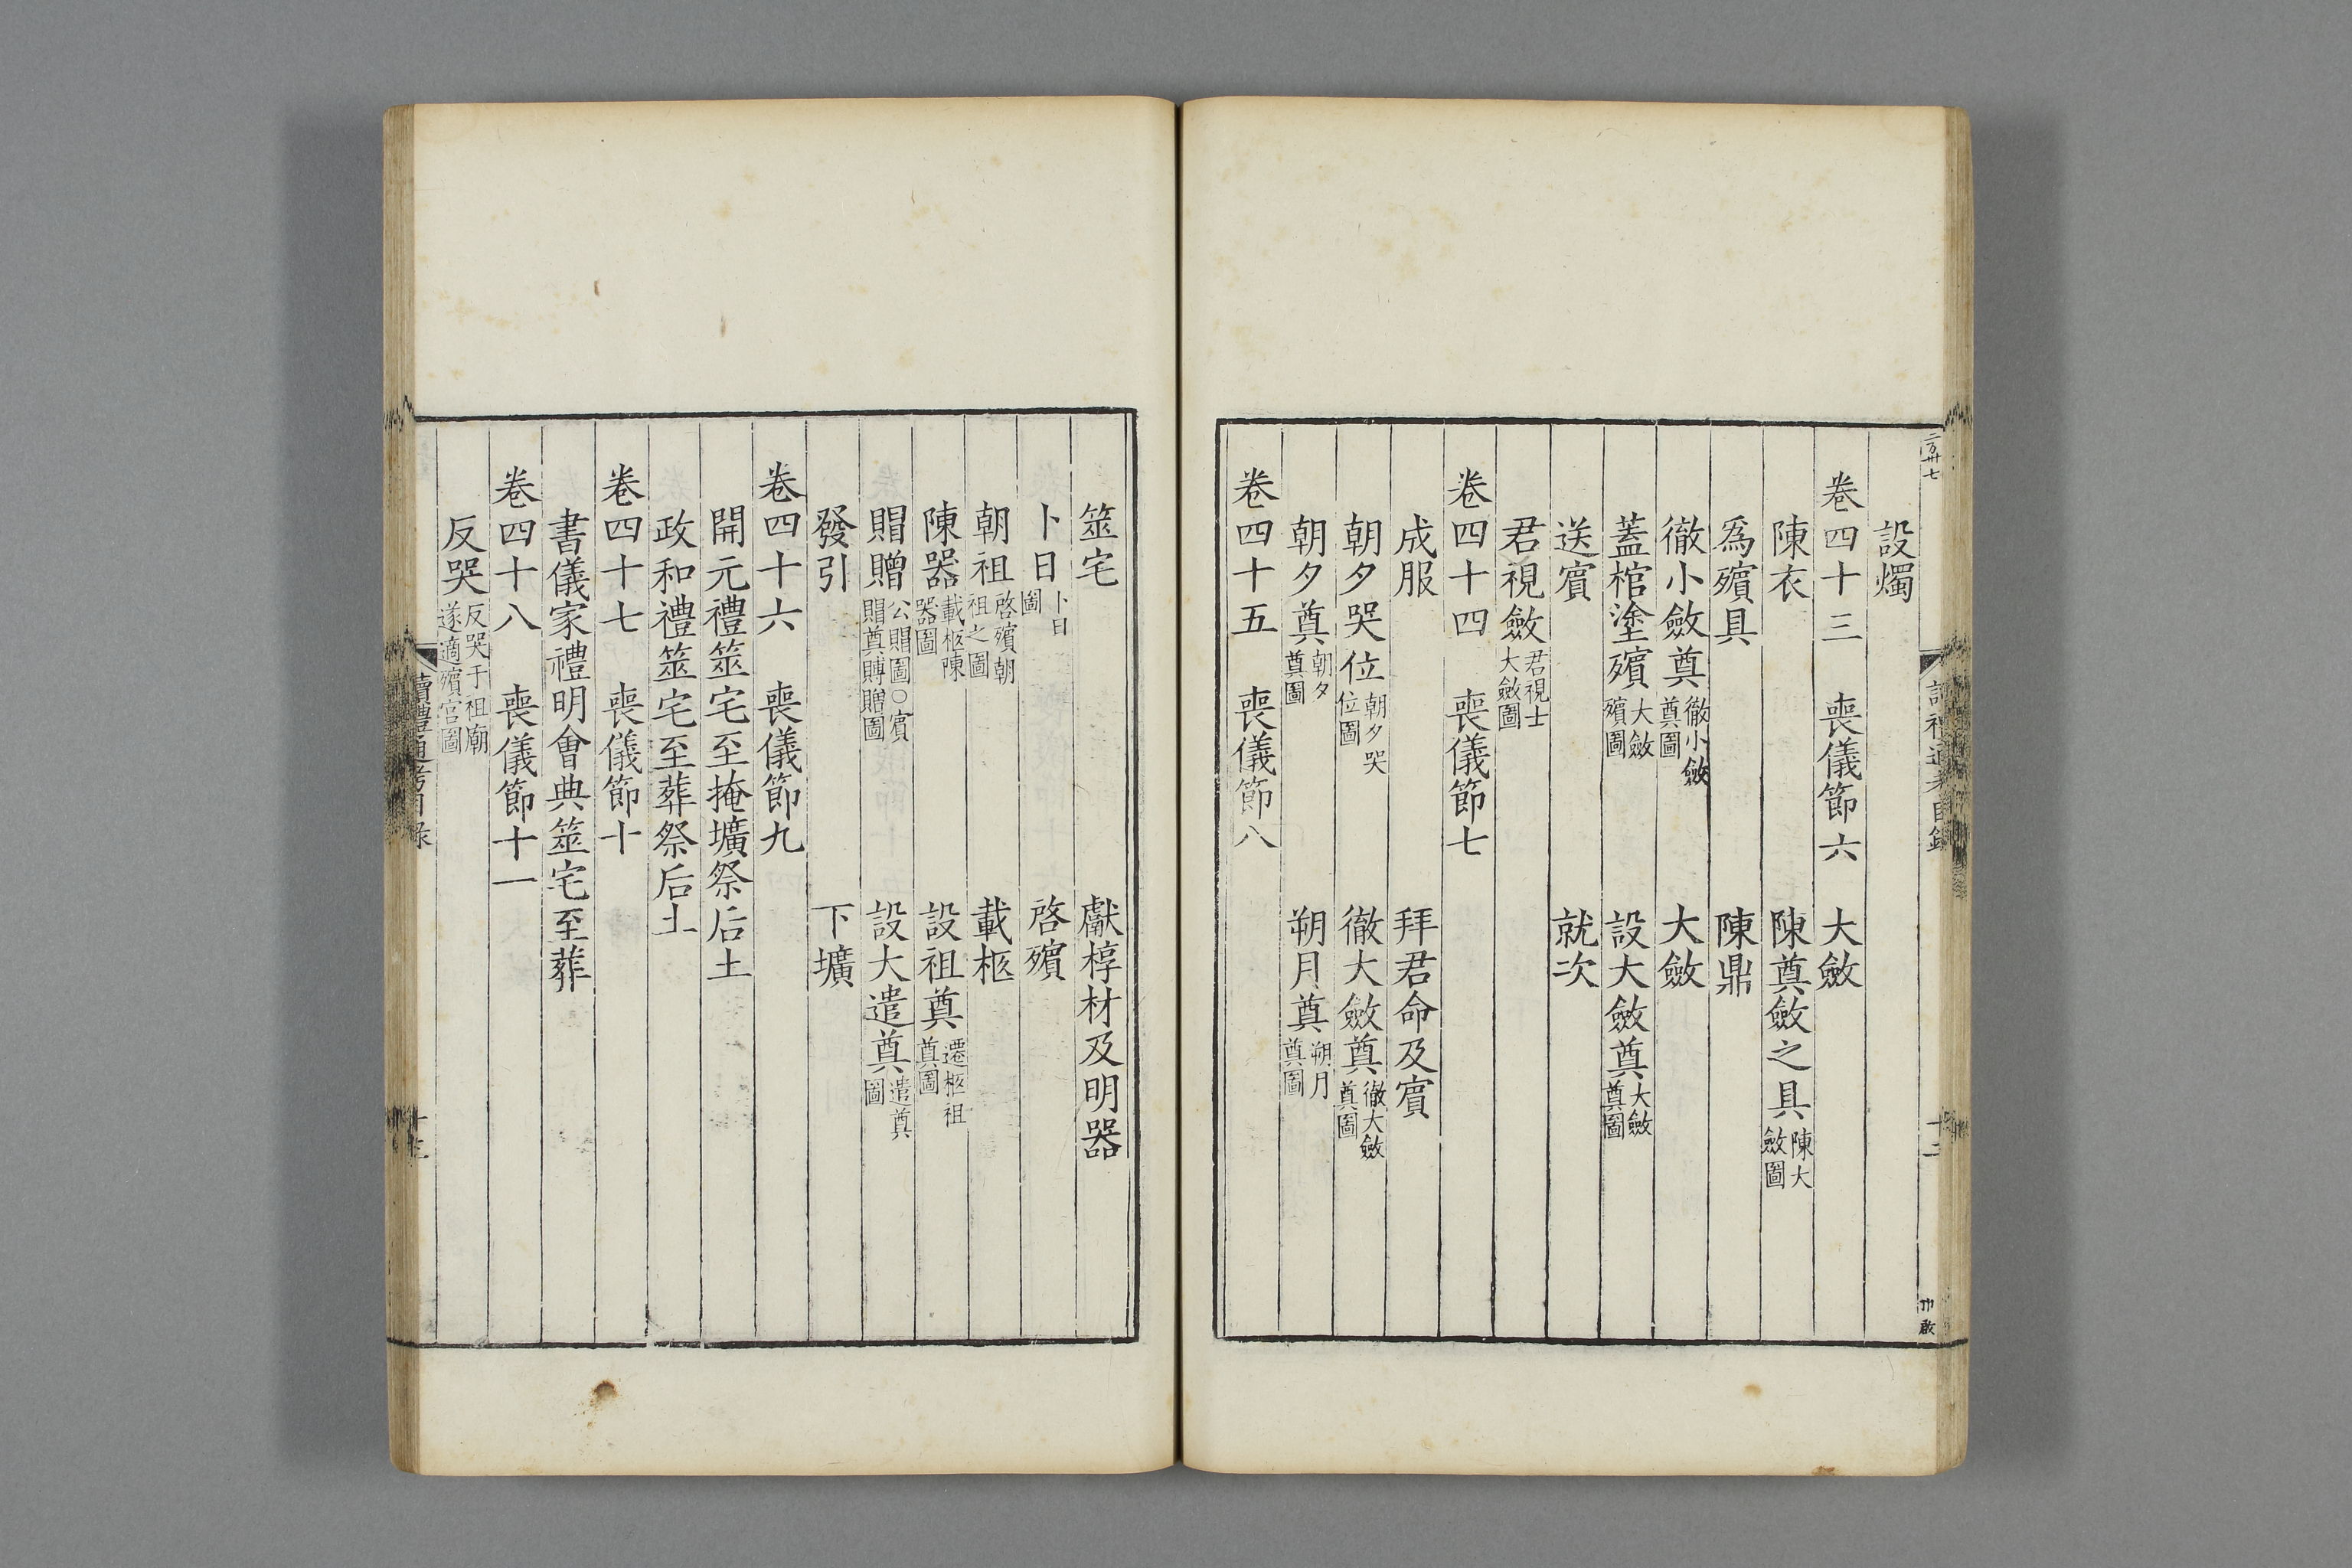 設燭
卷四十三　喪儀節六　大斂
陳衣　陳奠斂之具陳大斂圖
爲殯具　陳鼎
徹小斂奠徹小斂奠圖　大斂
蓋棺塗殯大斂殯圖　設大斂奠大斂奠圖
送賓　就次
君視斂君視士大斂圖
卷四十四　喪儀節七
成服　拜君命及賓
朝夕哭位朝夕哭位圖　徹大斂奠徹大斂奠圖
朝夕奠朝夕奠圖　朔月奠朔月奠圖
卷四十五　喪儀節八
筮宅　獻椁材及明器
卜日卜日圖　啓殯
朝祖啓殯朝祖之圖　載柩
陳器載柩陳器圖　設祖奠遷柩祖奠圖
賵贈公賵圖○賓賵奠賻贈圖　設大遣奠遣奠圖
發引　下壙
卷四十六　喪儀節九
開元禮筮宅至掩壙祭后土
政和禮筮宅至葬祭后土
卷四十七　喪儀節十
書儀家禮明會典筮宅至葬
卷四十八　喪儀節十一
反哭反哭于祖廟遂適殯宮圖
讀禮通考目录